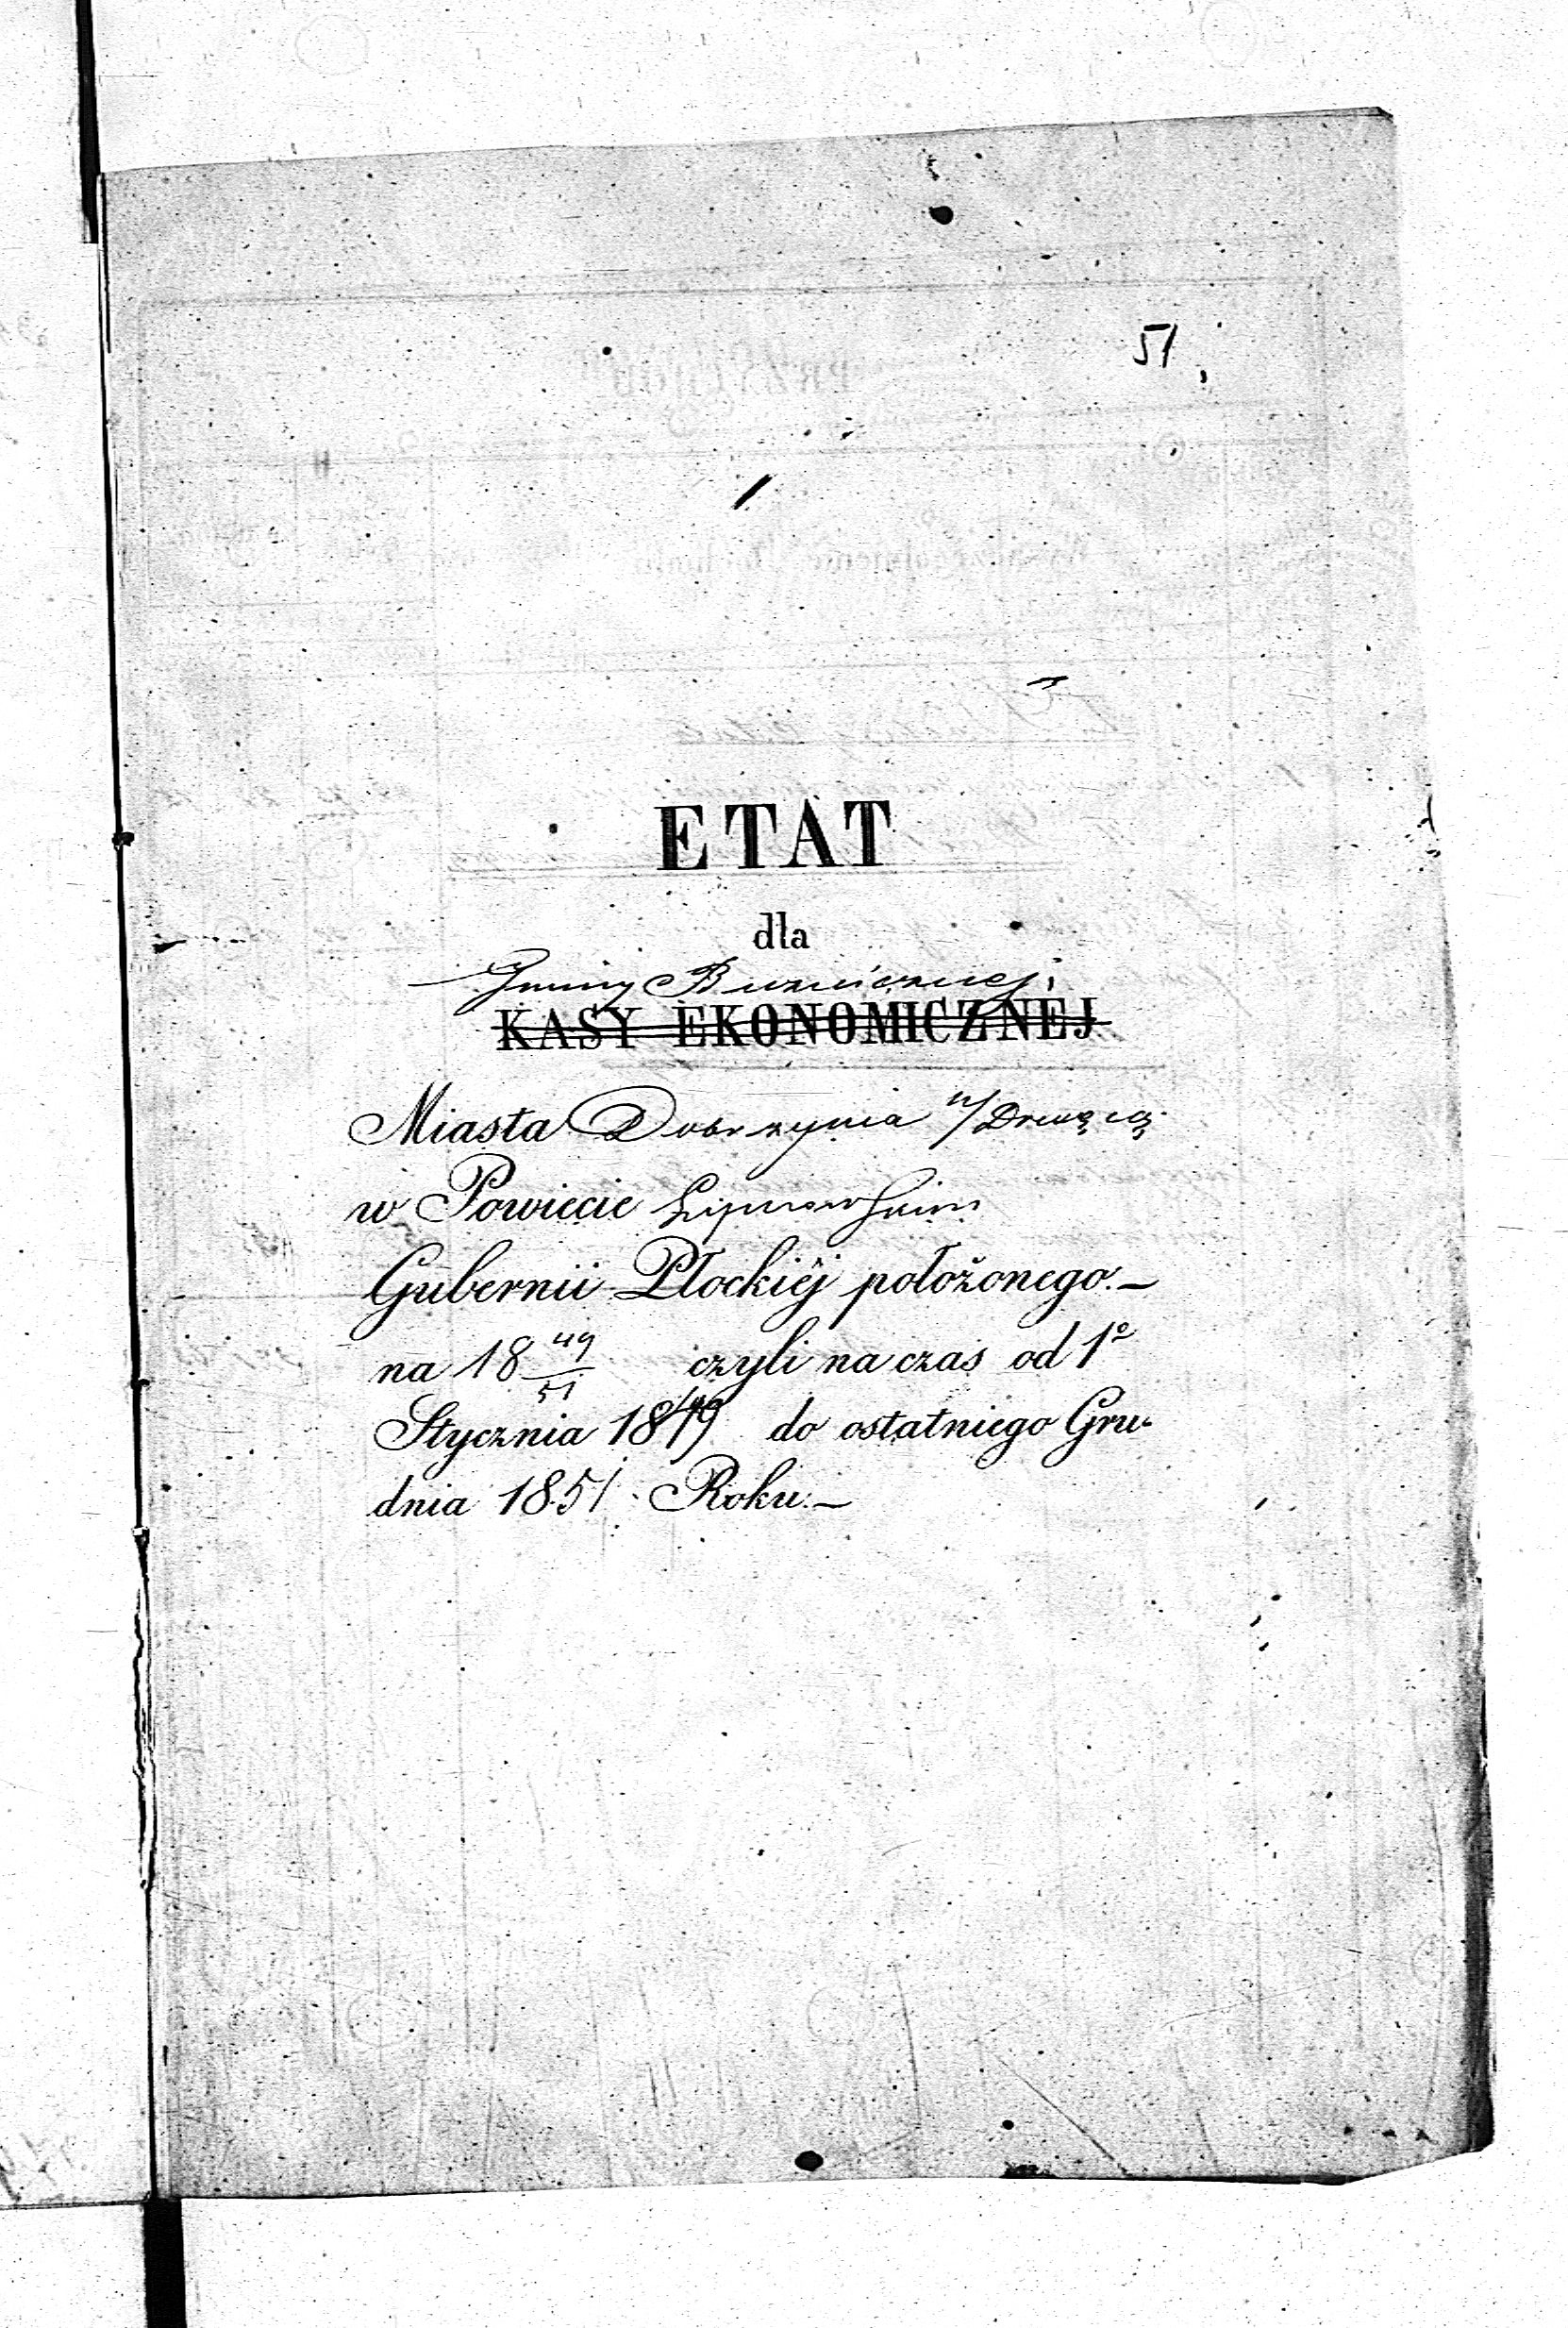 51
ETAT
dla
Gminy Bużnicznej
KASY EKONOMICZNEJ
Miasta Dobrzynia n/Drwęcą
w Powiecie Lipnowskim
Gubernii Płockiéj położonego.—
na 18 49/51 czyli na czas od 1º
Stycznia 1849 do ostatniego Gru-
dnia 1851 Roku.—